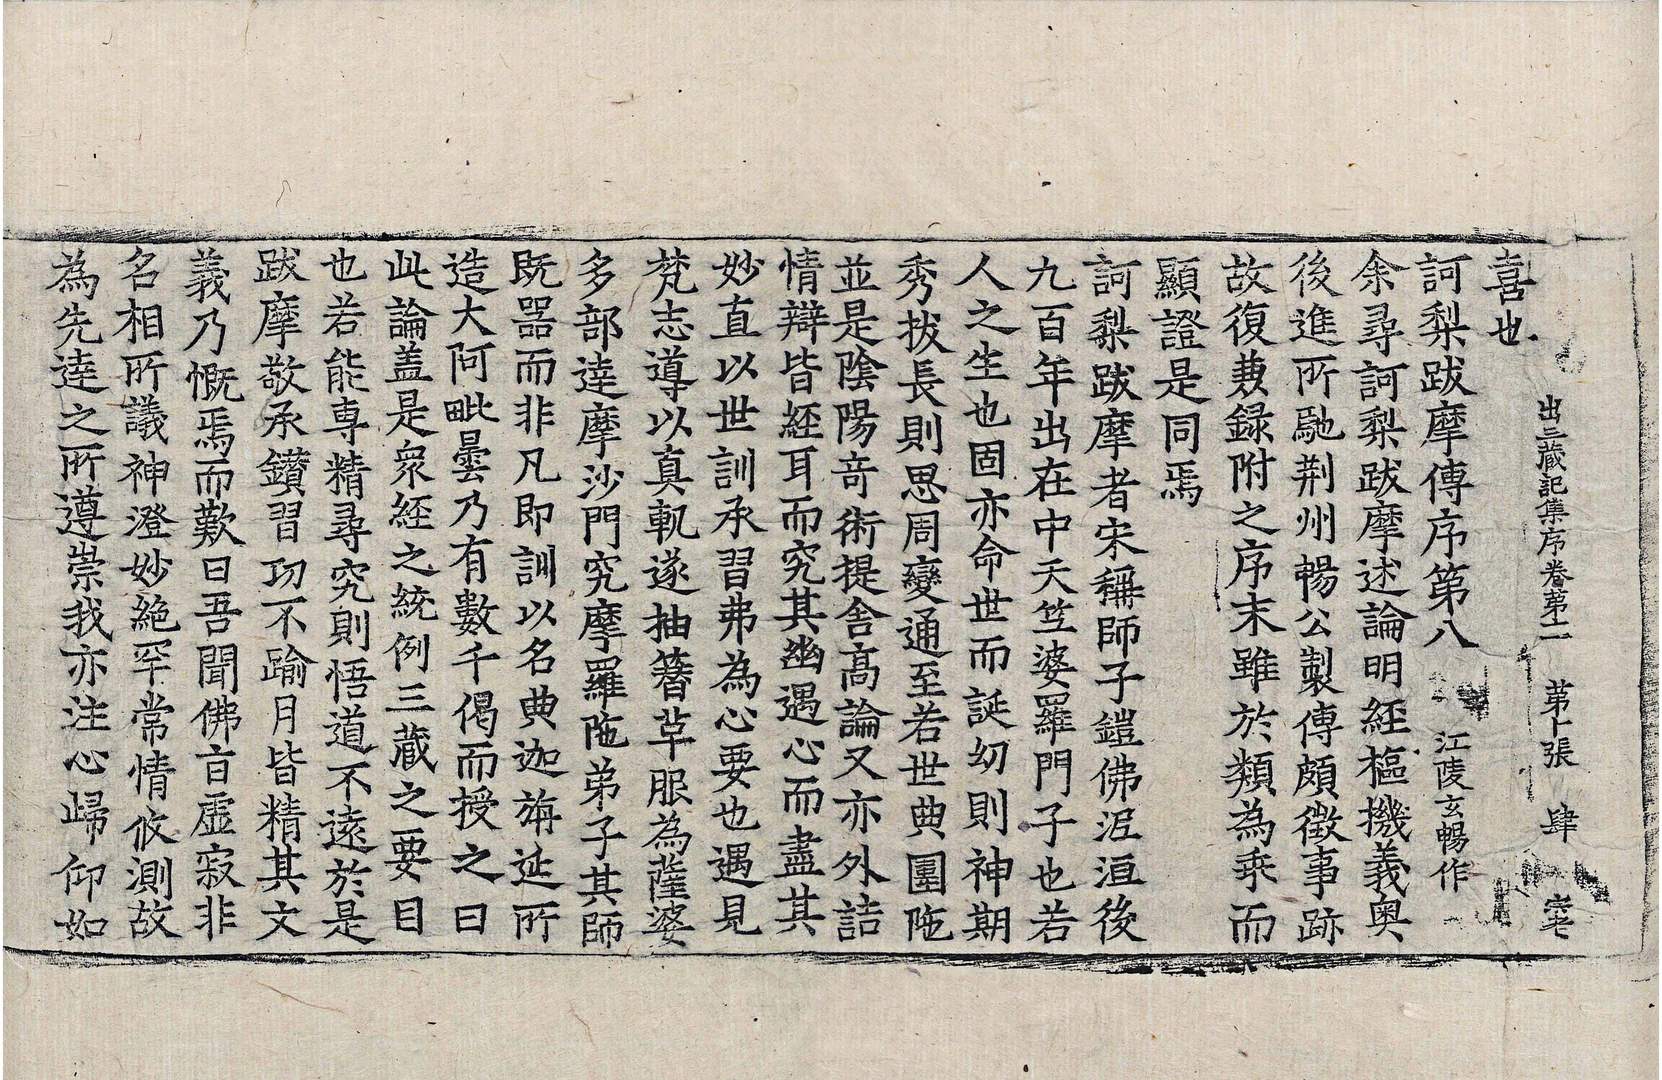 出三藏記集序卷第十一　第十張　肆　寍
喜也
訶梨跋摩傳序第八　江陵玄暢作
余尋訶梨跋摩述論明經樞機義奧
後進所馳荆州暢公製傳頗徵事跡
故復兼録附之序末雖於類為乖而
顯證是同焉
訶梨跋摩者宋稱師子鎧佛泥洹後
九百年出在中天竺婆羅門子也若
人之生也固亦命世而誕幼則神期
秀拔長則思周變通至若世典圍陁
並是陰陽竒術提舍高論又亦外詰
情辯皆經耳而究其幽遇心而盡其
妙直以世訓承習弗為心要也遇見
梵志導以真軌遂抽簪草服為薩婆
多部達摩沙門究摩羅陁弟子其師
既器而非凡即訓以名典迦旃延所
造大阿毗曇乃有數千偈而授之曰
此論盖是衆經之統例三藏之要目
也若能專精尋究則悟道不遠於是
跋摩敬承鑽習功不踰月皆精其文
義乃慨焉而歎曰吾聞佛旨虛寂非
名相所議神澄妙絶罕常情攸測故
為先達之所遵崇我亦注心歸仰如